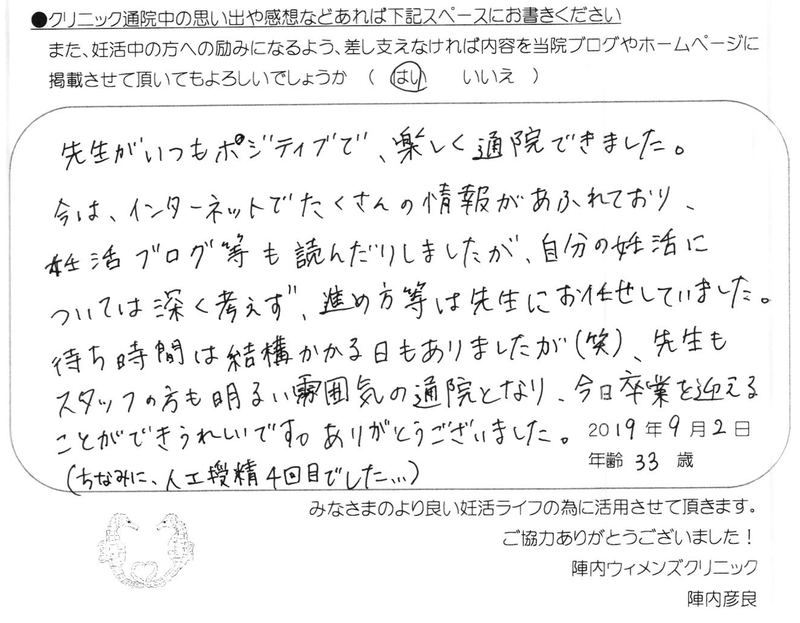 ●クリニック通院中の思い出や感想などあれば下記スペースにお書きください
また、妊活中の方への励みになるよう、差し支えなければ内容を当院ブログやホームページに
掲載させて頂いてもよろしいでしょうか （ はい いいえ ）
先生がいつもポジティブで、楽しく通院できました。
今は、インターネットでたくさんの情報があふれており、
妊活ブログ等も読んだりしましたが、自分の妊活に
ついては深く考えず、進め方等は先生にお任せしていました。
待ち時間は結構かかる日もありましたが(笑)、先生も
スタッフの方も明るい雰囲気の通院となり、今日卒業を迎える
ことができうれしいです。ありがとうございました。
2019年9月2日
(ちなみに、人工授精4回目でした…)
年齢 33 歳
みなさまのより良い妊活ライフの為に活用させて頂きます。
ご協力ありがとうございました！
陣内ウィメンズクリニック
陣内彦良